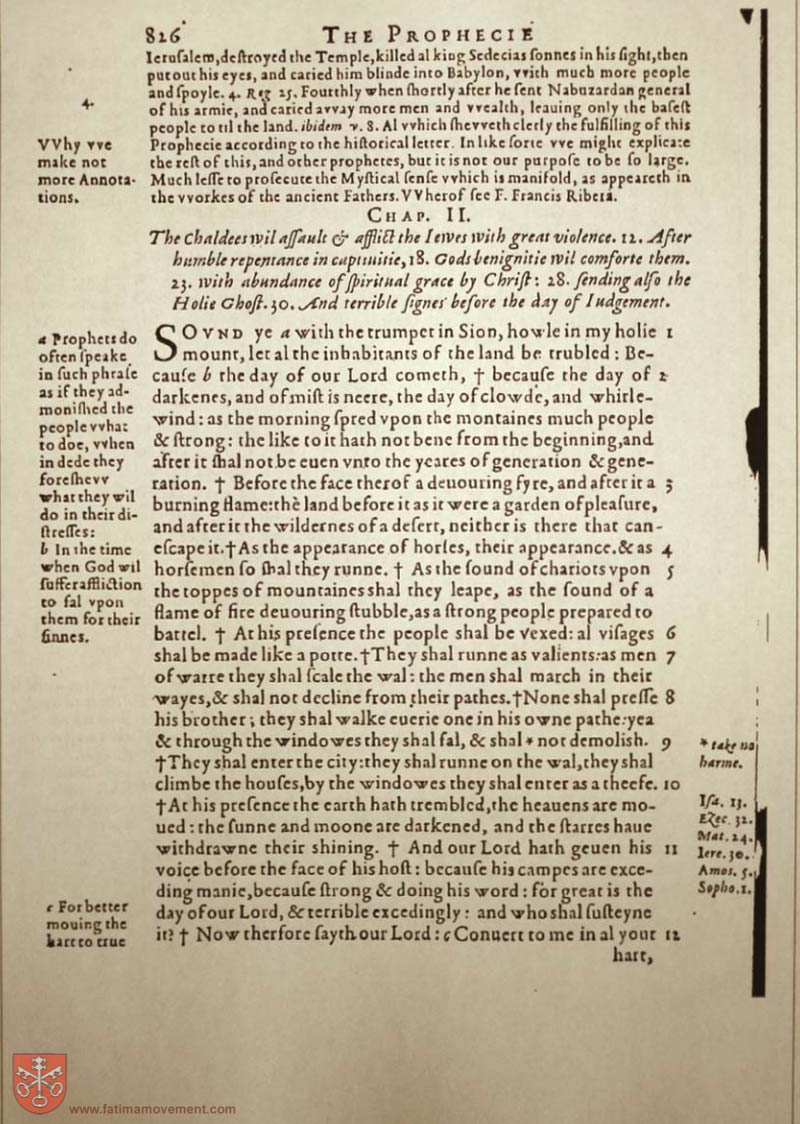 826 THE PROPHECIE
Ierusalem, destroyed the Temple, killed al king Sedecias sonnes in his sight, then
put out his eyes, and caried him blinde into Babylon, vvith much more people
and spoyle. 4. Reg 25. Fourthly when shortly after he sent Nabuzardan general
4.
of his armie, and caried avvay more men and vvealth, leauing only the basest
people to til the land. ibidem v. 8. Al vvhich shevveth cleerly the fulfilling of this
VVhy vve
Prophecie according to the historical letter. In like sorte vve might explicate
make not
the rest of this, and other prophetes, but it is not our purpose to be so large.
more Annota-
Much lesse to prosecute the Mystical sense vvhich is manifold, as appeareth in
tions.
the vvorkes of the ancient Fathers. VVherof see F. Francis Ribera.
CHAP. II.
The Chaldees wil assault & afflict the Iewes with great violence. 12. After
humble repentance in captiuitie, 18. Gods benignitie wil comforte them.
23. with abundance of spiritual grace by Christ: 28. sending also the
Holie Ghost. 30. And terrible signes before the day of Iudgement.
SOVND ye a with the trumpet in Sion, howle in my holie 1
mount, let al the inhabitants of the land be trubled: Be-
cause b the day of our Lord cometh, † because the day of 2
darkenes, and of mist is neere, the day of clowde, and whirle-
wind: as the morning spred vpon the montaines much people
& strong: the like to it hath not bene from the beginning, and
after it shal not be euen vnto the yeares of generation & gene-
ration. † Before the face therof a deuouring fyre, and after it a 3
burning flame: the land before it as it were a garden of pleasure,
and after it the wildernes of a desert, neither is there that can-
escape it. † As the appearance of horses, their appearance. & as 4
horsemen so shal they runne. † As the sound of chariots vpon 5
the toppes of mountaines shal they leape, as the sound of a
flame of fire deuouring stubble, as a strong people prepared to
battel. † At his presence the people shal be vexed: al visages 6
shal be made like a potte. † They shal runne as valients: as men 7
of warre they shal scale the wal: the men shal march in their
wayes, & shal not decline from their pathes. † None shal presse 8
his brother; they shal walke euerie one in his owne pathe: yea
& through the windowes they shal fal, & shal * not demolish. 9
† They shal enter the city: they shal runne on the wal, they shal
climbe the houses, by the windowes they shal enter as a theefe. 10
† At his presence the earth hath trembled, the heauens are mo-
ued: the sunne and moone are darkened, and the starres haue
withdrawne their shining. † And our Lord hath geuen his 11
voice before the face of his host: because his campes are exce-
ding manie, because strong & doing his word: for great is the
day of our Lord, & terrible excedingly: and who shal susteyne
it? † Now therfore sayth our Lord: c Conuert to me in al your 12
hart,
a Prophets do
often speake
in such phrase
as if they ad-
monished the
people vvhat
to doe, vvhen
in dede they
foreshevv
what they wil
do in their di-
stresses:
b In the time
when God wil
suffer affliction
to fal vpon
them for their
sinnes.
c For better
mouing the
hart to true
* take no
harme.
Isa. 13.
Ezec. 32.
Mat. 24.
Iere. 30.
Amos. 5.
Sopho. 1.
www.fatimamovement.com